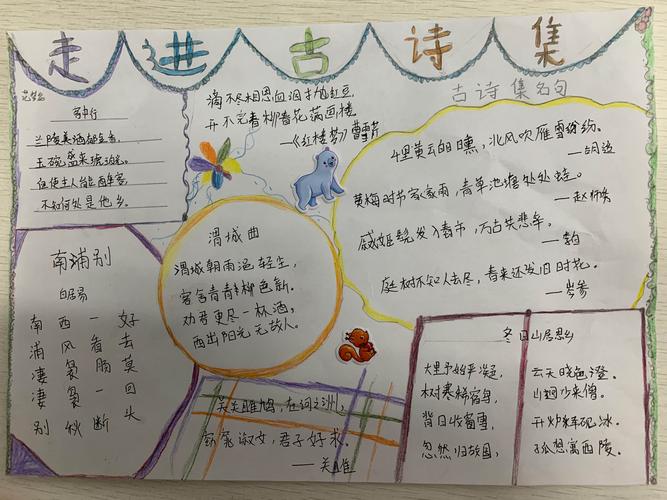 走进古诗集
客中行
兰陵美酒郁金香,
玉碗盛来琥珀光.
但使主人能醉客,
不知何处是他乡.
滴不尽相思血泪抛红豆,
开不完春柳春花满画楼
—《红楼梦》曹雪芹
古诗集名句
千里黄云白日曛,北风吹雁雪纷纷.
—胡适
黄梅时节家家雨,青草池塘处处蛙.
—赵师秀
万古共悲辛.
—李白
庭树不知人去尽,春来还发旧时花.
—岑参
南浦别
白居易
南浦凄凄别
西风袅袅秋
一看肠一断
好去莫回头
渭城曲
渭城朝雨浥轻尘,
客舍青青柳色新.
劝君更尽一杯酒,
西出阳关无故人.
关关雎鸠,在河之洲,
窈窕淑女,君子好求.
——关雎
冬日山居思乡
大野始严凝,
云天晓色澄.
树寒稀宿鸟,
山迥少来僧.
背日收窗雪,
开炉释砚冰.
忽然归故国,
孤想寓西陵.